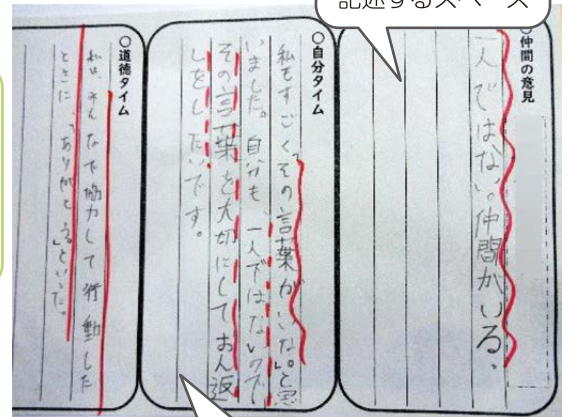 記述するスペース
○仲間の意見
一人ではない。仲間がいる。
○自分タイム
私もすごくその言葉がいいなと思
いました。自分も、一人ではないので
その言葉を大切にしておん返
しをしたいです。
○道徳タイム
私は、みんなで協力して行動した
ときに、「ありがとう。」といった。